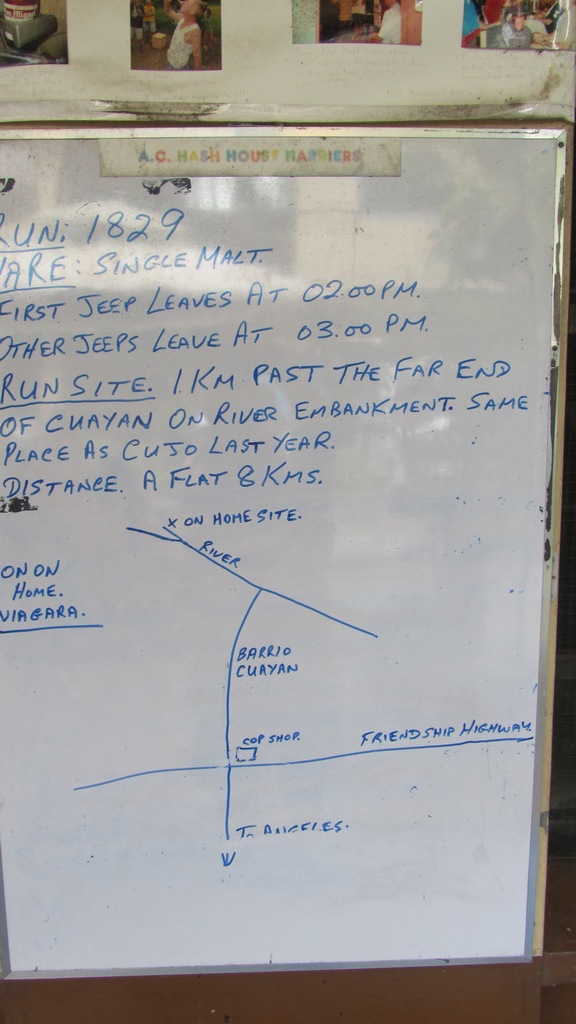 A.C. HASH HOUSE HARRIERS
RUN: 1829
HARE: SINGLE MALT.
FIRST JEEP LEAVES AT 02.00 PM.
OTHER JEEPS LEAVE AT 03.00 PM.
RUN SITE. 1 KM PAST THE FAR END
OF CUAYAN ON RIVER EMBANKMENT. SAME
PLACE AS CUJO LAST YEAR.
DISTANCE. A FLAT 8 KMS.
X ON HOME SITE.
RIVER
ON ON
HOME.
VIAGARA.
BARRIO
CUAYAN
COP SHOP.
FRIENDSHIP HIGHWAY.
TO ANGELES.